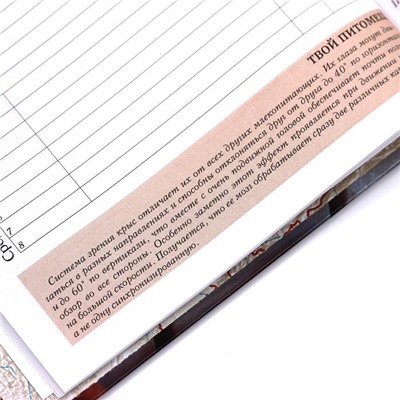 ТВОЙ ПИТОМЕЦ
Система зрения крыс отличает их от всех других млекопитающих. Их глаза могут
гаться в разных направлениях и способны отклоняться друг от друга до 40° по горизонтали
и до 60° по вертикали, что вместе с очень подвижной головой обеспечивает почти
обзор во все стороны. Особенно заметно этот эффект проявляется при движении
на большой скорости. Получается, что ее мозг обрабатывает сразу две различных
а не одну синхронизированную.
7
8
Ср